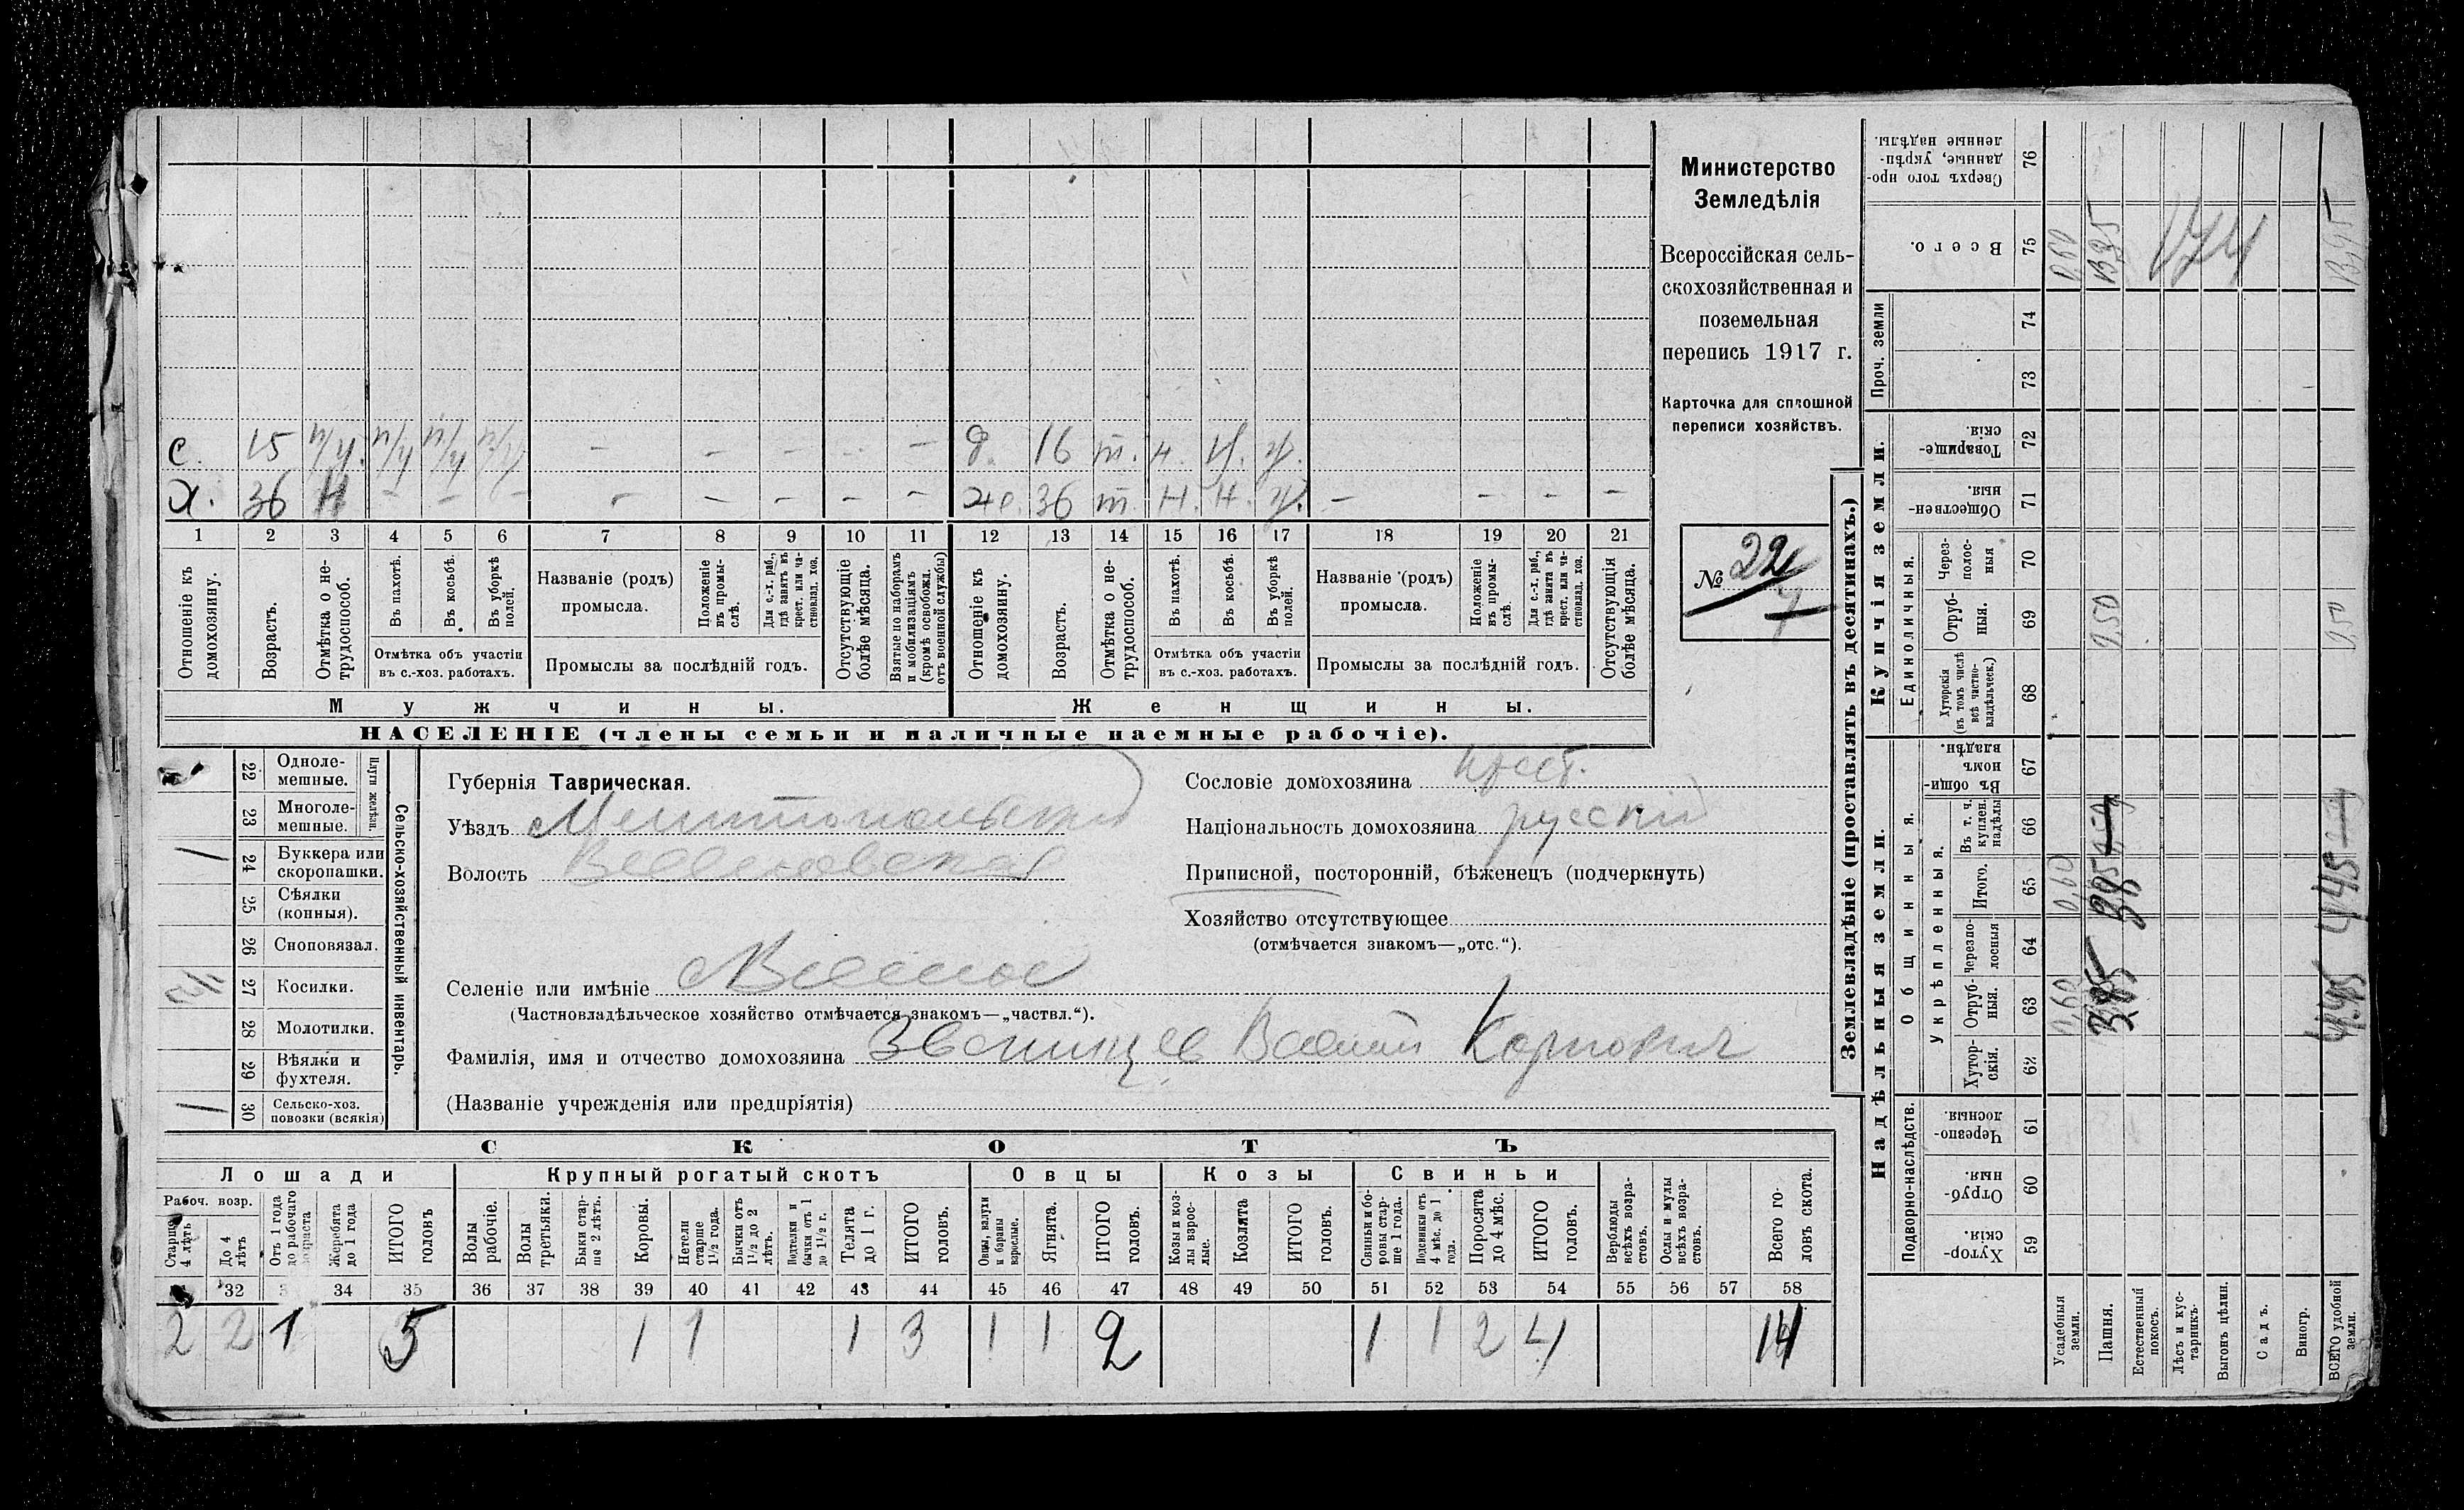 Министерство
Земледѣлія
Всероссійская сель-
скохозяйственная и
поземельная
перепись 1917 г.
Карточка для сплошной
переписи хозяйствъ.
№ 22
7
с. 15 н/у. н/у н/у н/у — — — — — д. 16 т. н. н. у.
х. 36 н — — — — — — — — же. 36 т. н. н. у. — — — —
1 2 3 4 5 6 7 8 9 10 11 12 13 14 15 16 17 18 19 20 21
Отношеніе къ домохозяину.
Возрастъ.
Отмѣтка о не-трудоспособ.
Въ пахотѣ.
Въ косьбѣ.
Въ уборкѣ полей.
Отмѣтка объ участіи
въ с.-хоз. работахъ.
Названіе (родъ)
промысла.
Положеніе въ промы-слѣ.
Для с.-х. раб., гдѣ занятъ въ крест. или ча-стновлад. хоз.
Промыслы за послѣдній годъ.
Отсутствующіе болѣе мѣсяца.
Взятые по наборамъ и мобилизаціямъ (кромѣ освобожд. отъ военной службы)
Отношеніе къ домохозяину.
Возрастъ.
Отмѣтка о не-трудоспособ.
Въ пахотѣ.
Въ косьбѣ.
Въ уборкѣ полей.
Отмѣтка объ участіи
въ с.-хоз. работахъ.
Названіе (родъ)
промысла.
Положеніе въ промы-слѣ.
Для с.-х. раб., гдѣ занята въ крест. или ча-стновлад. хоз.
Промыслы за послѣдній годъ.
Отсутствующія болѣе мѣсяца.
Мужчины. Женщины.
НАСЕЛЕНІЕ (члены семьи и наличные наемные рабочіе).
22 Одноле-мешные.
23 Многоле-мешные.
Плуги желѣзн.
24 Буккера или скоропашки.
25 Сѣялки (конныя).
26 Сноповязал.
27 Косилки.
28 Молотилки.
29 Вѣялки и фухтеля.
30 Сельско-хоз. повозки (всякія)
Сельско-хозяйственный инвентарь.
Губернія Таврическая.
Уѣздъ Мелитопольский
Волость Веселовская
Селеніе или имѣніе Веселое
(Частновладѣльческое хозяйство отмѣчается знакомъ—„частвл.“).
Фамилія, имя и отчество домохозяина Звонинцев Василий Карпович
(Названіе учрежденія или предпріятія)
Сословіе домохозяина крест.
Національность домохозяина русский
Приписной, посторонній, бѣженецъ (подчеркнуть)
Хозяйство отсутствующее
(отмѣчается знакомъ—„отс.“).
СКОТЪ
Лошади Крупный рогатый скотъ Овцы Козы Свиньи
Рабоч. возр.
Старше 4 лѣтъ
До 4 лѣтъ
Отъ 1 года до рабочаго возраста
Жеребята до 1 года
ИТОГО головъ
Волы рабочіе.
Волы третьяки.
Быки стар-ше 2 лѣтъ.
Коровы.
Нетели старше 1½ года.
Бычки отъ 1½ до 2 лѣтъ.
Подтелки и бычки отъ 1 до 1½ г.
Телята до 1 г.
ИТОГО головъ.
Овцы, валухи и бараны взрослые.
Ягнята.
ИТОГО головъ.
Козы и коз-лы взрос-лые.
Козлята
ИТОГО головъ.
Свиньи и бо-ровы стар-ше 1 года.
Подсвинки отъ 4 мѣс. до 1 года.
Поросята до 4 мѣс.
ИТОГО головъ.
Верблюды всѣхъ возра-стовъ.
Ослы и мулы всѣхъ возра-стовъ.
Всего го-ловъ скота.
32 34 35 36 37 38 39 40 41 42 43 44 45 46 47 48 49 50 51 52 53 54 55 56 57 58
2 2 1 5 1 1 1 3 1 1 2 1 1 2 4 14
Землевладѣніе (проставлять въ десятинахъ.)
Купчія земли.
Надѣльныя земли.
Сверхъ того про-данные, укрѣп-ленные надѣлы. 76
Всего. 75 0,60
174
Проч. земли 74 73
Товарище-скія. 72
Обществен-ныя. 71
Единоличныя.
Через-полос-ныя 70
Отруб-ныя. 69 9,50 9,50
Хуторскія (въ томъ числѣ всѣ частно-владѣльческ.) 68
Общинныя.
Въ общи-номъ владѣн. 67
Укрѣпленныя.
Въ т. ч. куплен. надѣлы 66
Итого. 65 0,60 445
Черезпо-лосныя 64
Отруб-ныя. 63 0,60
Хутор-скія. 62
Подворно-наслѣдств.
Черезпо-лосныя. 61
Отруб-ныя. 60
Хутор-скія. 59
Усадебныя земли.
Пашня.
Естественный покосъ.
Лѣсъ и кус-тарникъ.
Выгонъ цѣлин.
Садъ.
Виногр.
ВСЕГО удобной земли.